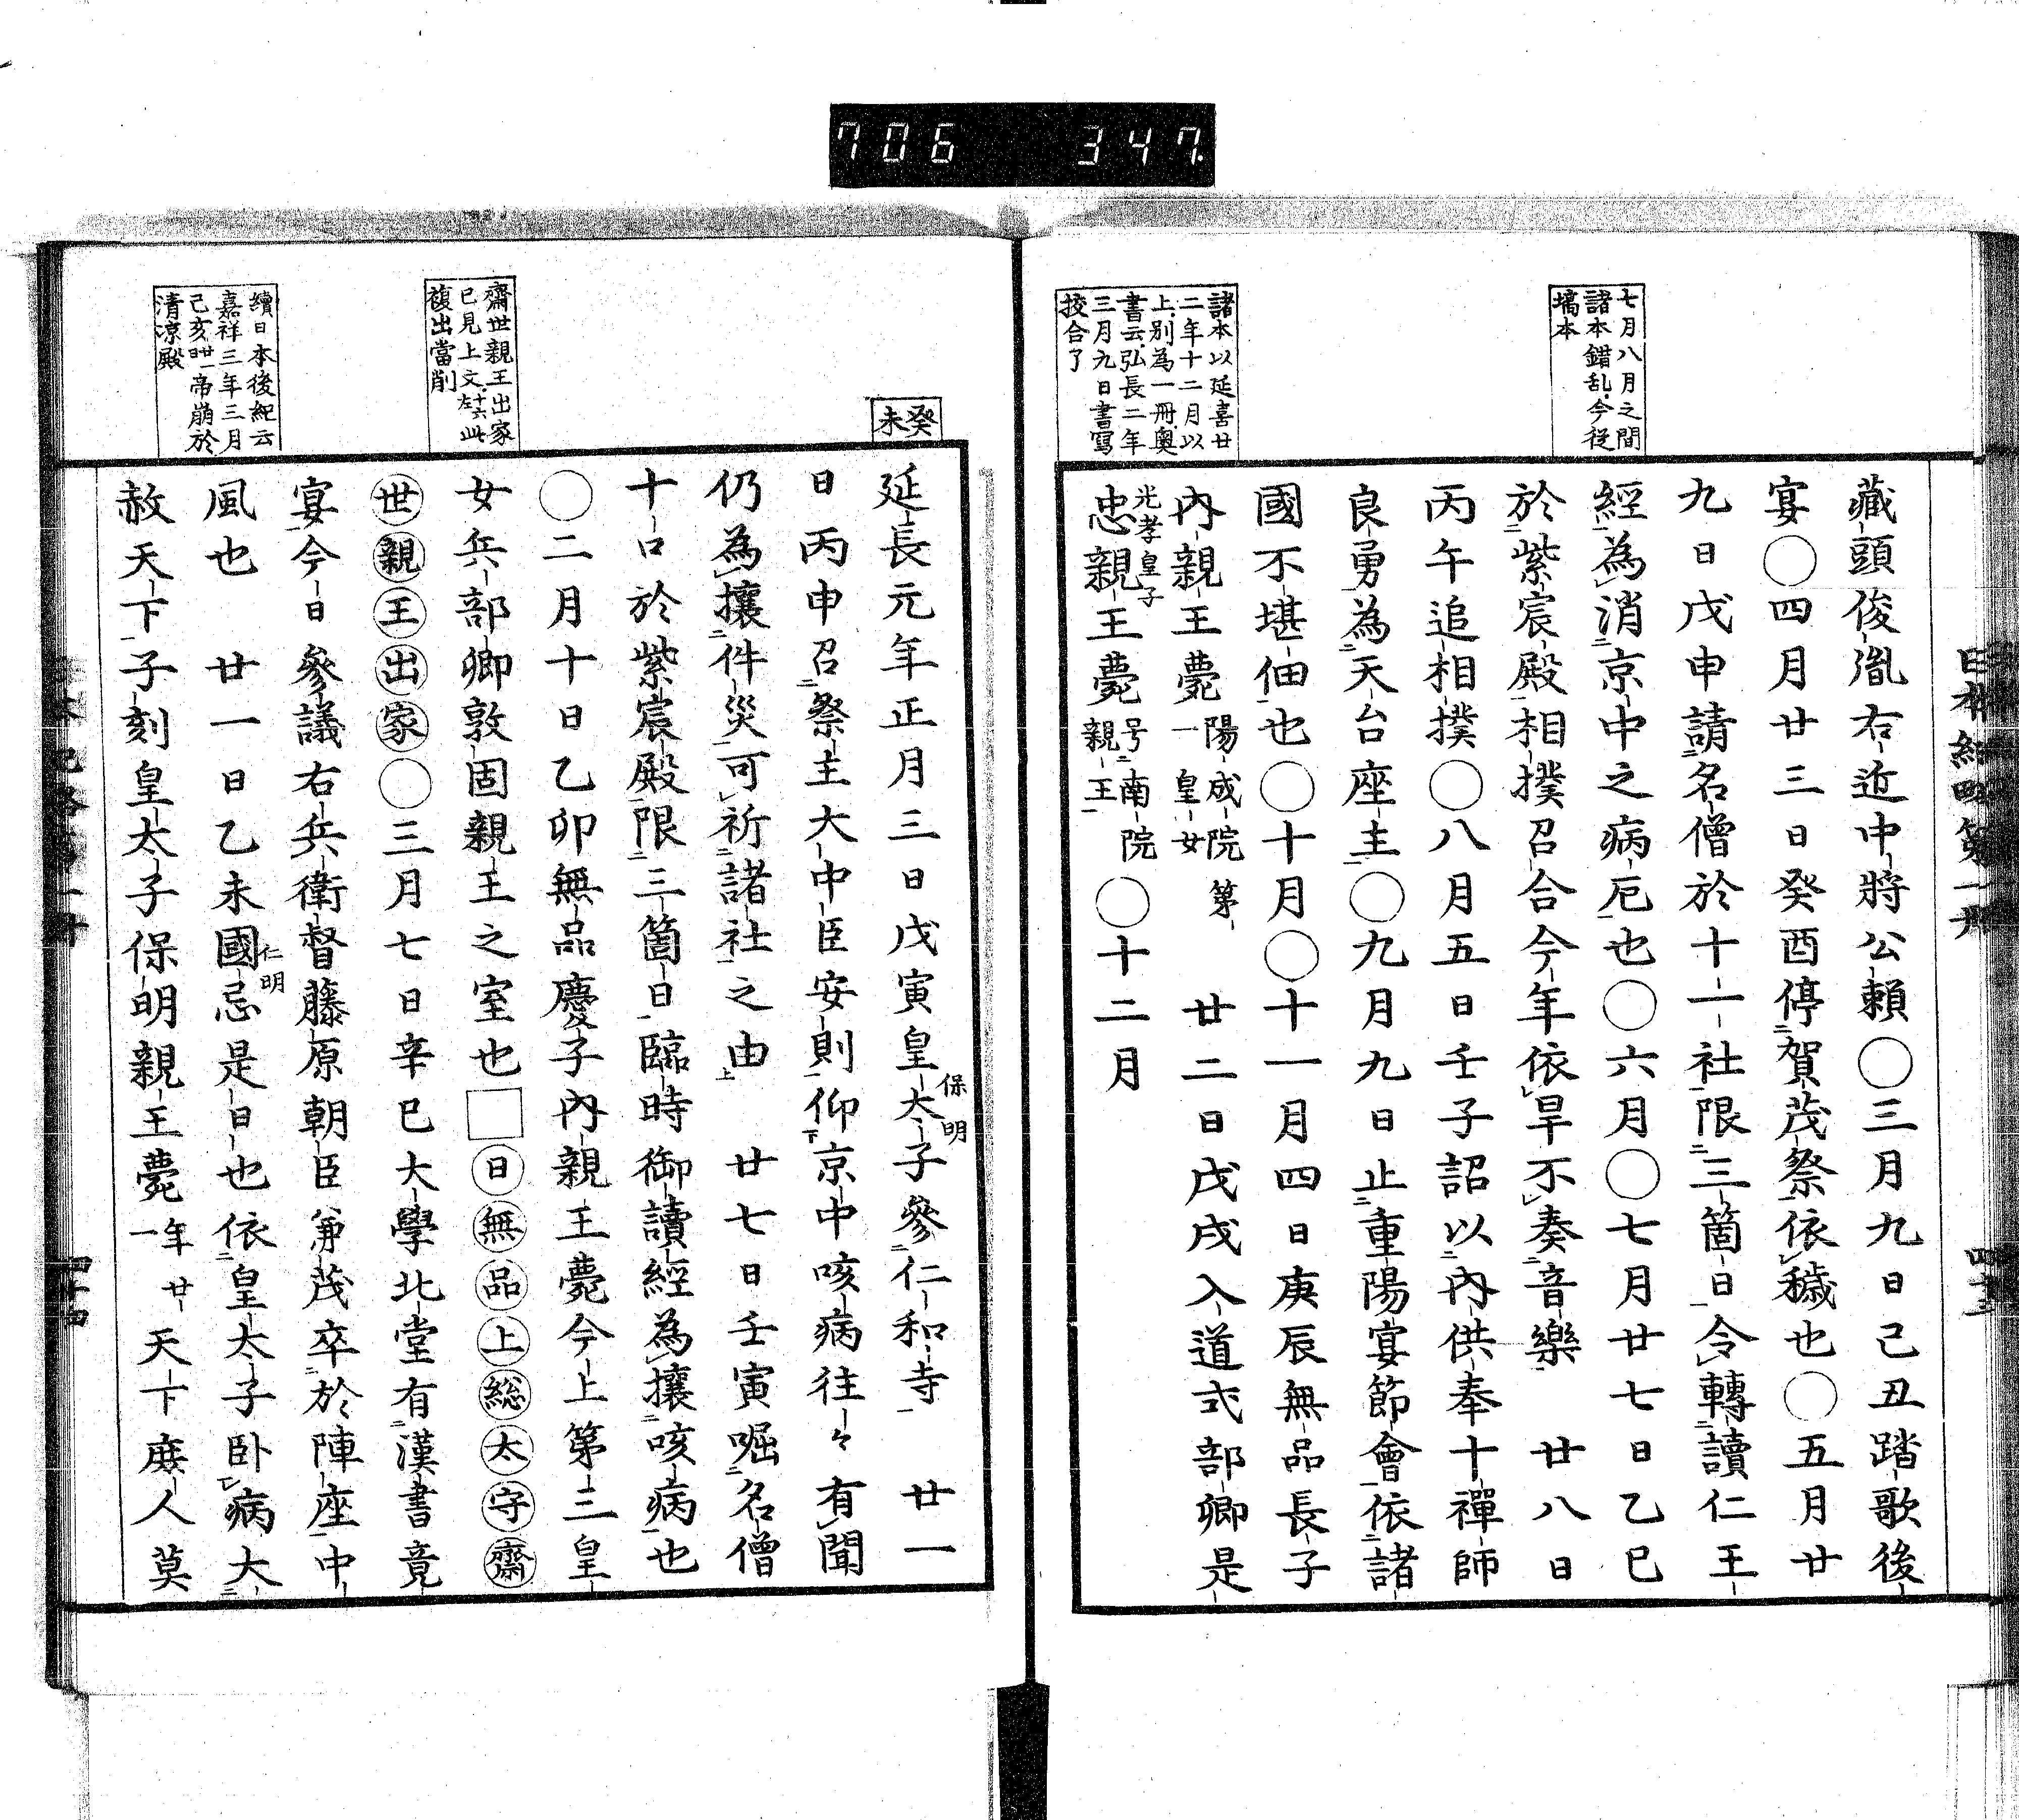 706 347.
七月八月之間
諸本錯乱今従
塙本
諸本以延喜廿
二年十二月以
上別為一冊奥
書云弘長二年
三月九日書寫
挍合了
藏頭俊胤右近中將公賴〇三月九日己丑踏歌後
宴〇四月廿三日癸酉停賀茂祭依穢也〇五月廿
九日戊申請名僧於十一社限三箇日令轉讀仁王
經為消京中之病厄也〇六月〇七月廿七日乙巳
於紫宸殿相撲召合今年依旱不奏音樂 廿八日
丙午追相撲〇八月五日壬子詔以內供奉十禪師
良勇為天台座主〇九月九日止重陽宴節會依諸
國不堪佃也〇十月〇十一月四日庚辰無品長子
內親王薨陽成院第一皇女 廿二日戊戌入道式部卿是
光孝皇子
忠親王薨号南院親王〇十二月
日本紀略第一册 四十三
癸未
齋世親王出家
已見上文十六左此
複出當削
續日本後紀云
嘉祥三年三月
己亥廿一日帝崩於
清凉殿
延長元年正月三日戊寅皇太子參仁和寺 廿一
保明
日丙申召祭主大中臣安則仰京中咳病往々有聞
仍為攘件災可祈諸社之由 廿七日壬寅啒名僧
十口於紫宸殿限三箇日臨時御讀經為攘咳病也
〇二月十日乙卯無品慶子內親王薨今上第三皇
女兵部卿敦固親王之室也□日無品上総太守齋
世親王出家〇三月七日辛巳大學北堂有漢書竟
宴今日參議右兵衛督藤原朝臣兼茂卒於陣座中
風也 廿一日乙未國忌是日也依皇太子臥病大
仁明
赦天下子刻皇太子保明親王薨年廿一天下庶人莫
四十四